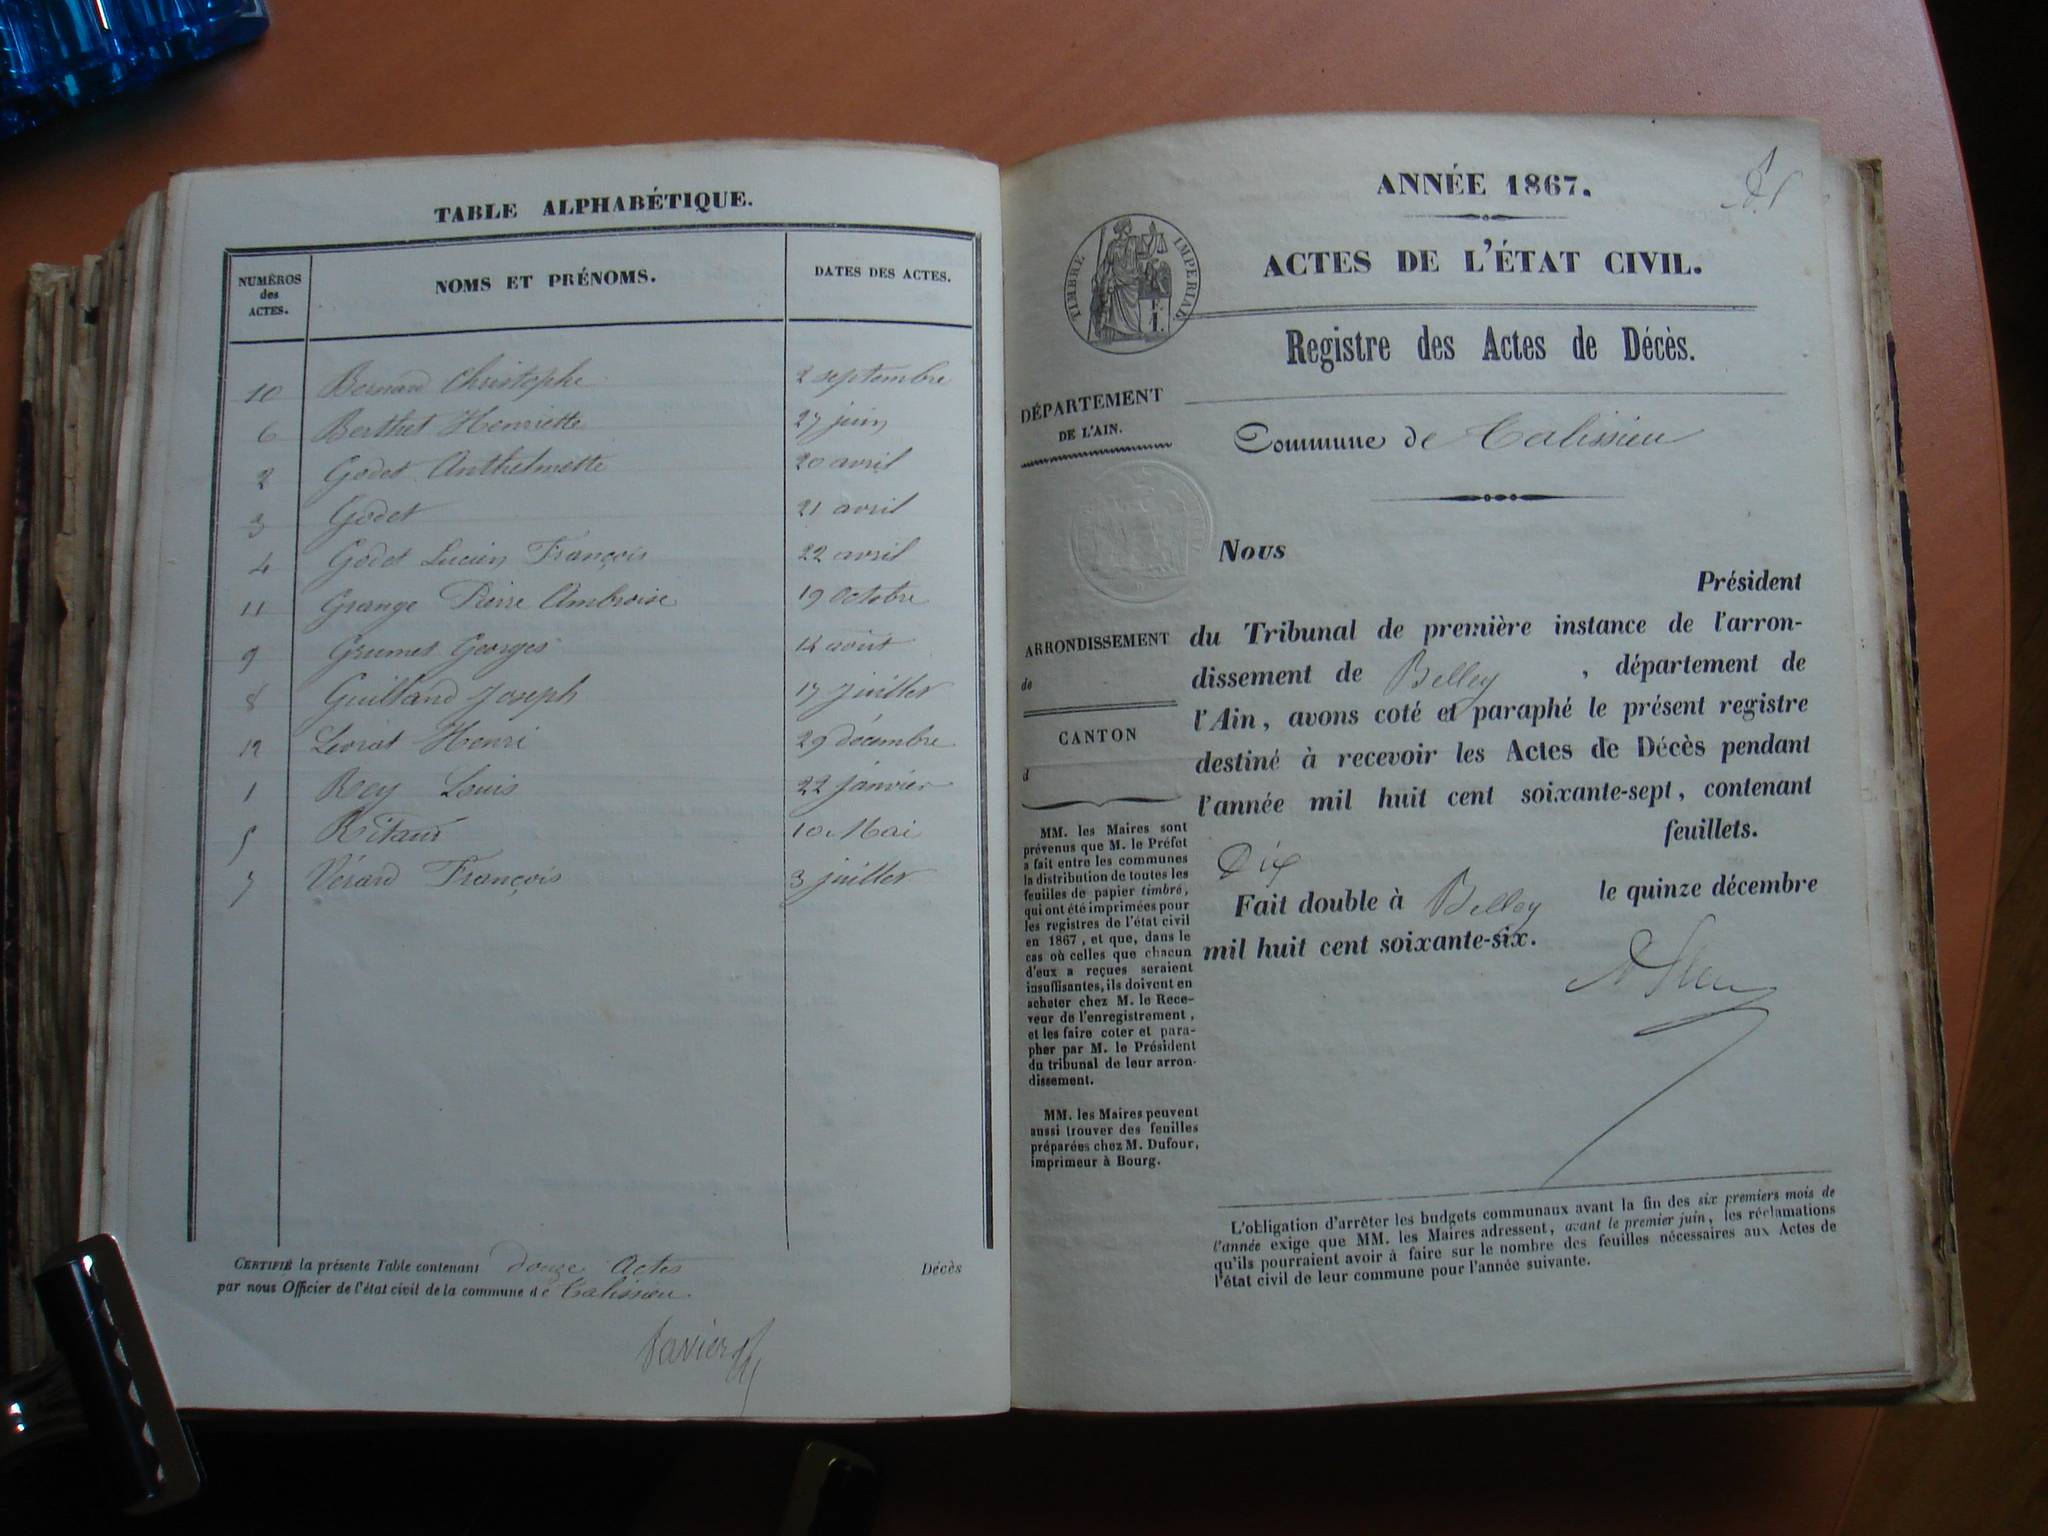 TABLE ALPHABÉTIQUE.
NUMÉROS des ACTES. NOMS ET PRÉNOMS. DATES DES ACTES.
10 Bernard Christophe 2 septembre
6 Berthet Henriette 27 juin
2 Godet Anthelmette 20 avril
3 Godet 21 avril
4 Godet Lucien François 22 avril
11 Grange Pierre Ambroise 19 Octobre
9 Grumet Georges 14 août
8 Guilland Joseph 17 Juillet
12 Livrat Henri 29 décembre
1 Rey Louis 22 janvier
5 Ritaud 10 Mai
7 Vérard François 3 juillet
CERTIFIÉ la présente Table contenant douze Actes Décès
par nous Officier de l'état civil de la commune de Talissieu
ANNÉE 1867.
ACTES DE L'ÉTAT CIVIL.
TIMBRE IMPERIAL
Registre des Actes de Décès.
DÉPARTEMENT
DE L'AIN.
Commune de Talissieu
ARRONDISSEMENT
de
CANTON
d
MM. les Maires sont
prévenus que M. le Préfet
a fait entre les communes
la distribution de toutes les
feuilles de papier timbré,
qui ont été imprimées pour
les registres de l'état civil
en 1867, et que, dans le
cas où celles que chacun
d'eux a reçues seraient
insuffisantes, ils doivent en
acheter chez M. le Rece-
veur de l'enregistrement,
et les faire coter et para-
pher par M. le Président
du tribunal de leur arron-
dissement.
MM. les Maires peuvent
aussi trouver des feuilles
préparées chez M. Dufour,
imprimeur à Bourg.
Nous
Président
du Tribunal de première instance de l'arron-
dissement de Belley, département de
l'Ain, avons coté et paraphé le présent registre
destiné à recevoir les Actes de Décès pendant
l'année mil huit cent soixante-sept, contenant
feuillets.
Dix
Fait double à Belley le quinze décembre
mil huit cent soixante-six.
L'obligation d'arrêter les budgets communaux avant la fin des six premiers mois de
l'année exige que MM. les Maires adressent, avant le premier juin, les réclamations
qu'ils pourraient avoir à faire sur le nombre des feuilles nécessaires aux Actes de
l'état civil de leur commune pour l'année suivante.